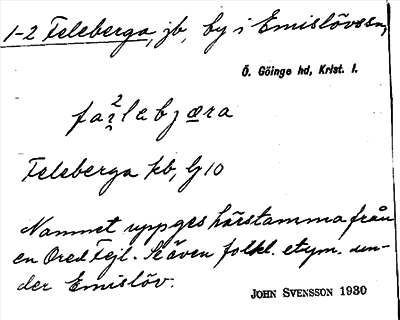 1-2 Feleberga, jb, by i Emislövssn,
Ö. Göinge hd, Krist. l.
Feleberga kb, Lj 10
Namnet uppges härstamma från
en Ored Fejl. Se även folkl. etym. un-
der Emislöv.
JOHN SVENSSON 1930